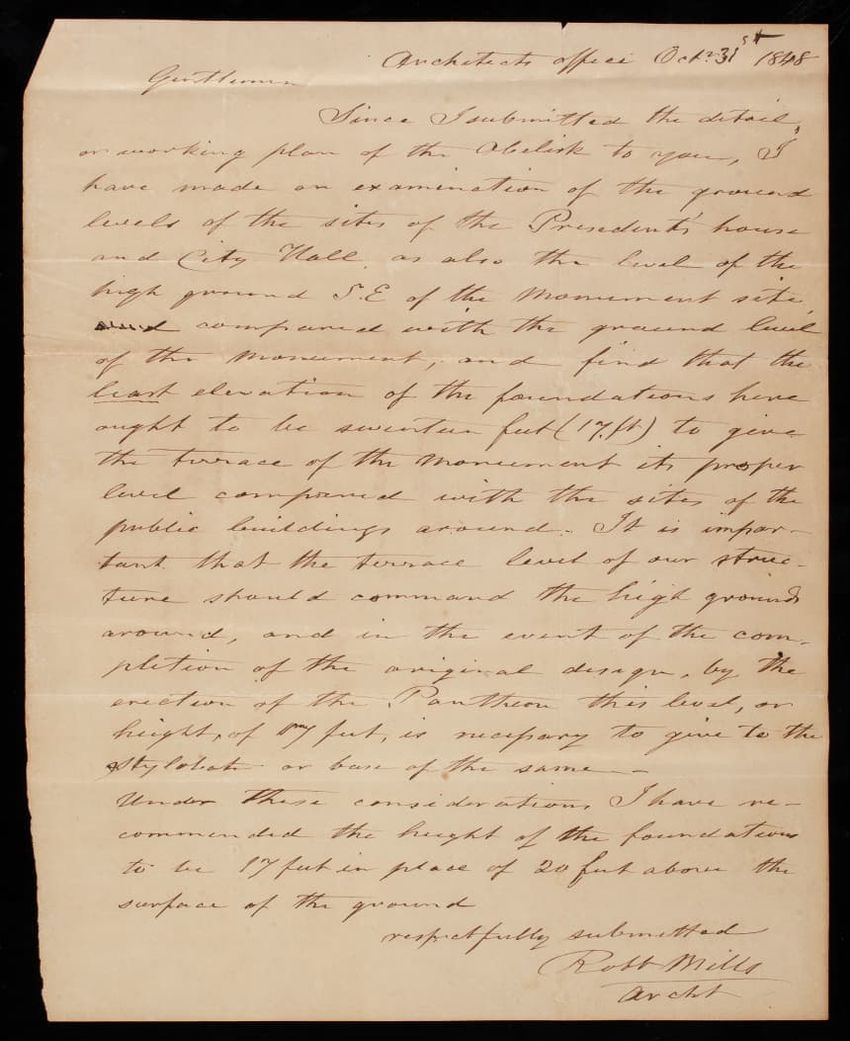 Architects office Octr. 31st 1848
Gentlemen
Since I submitted the detail
or working plan of the Obelisk to you, I
have made an examination of the ground
levels of the sites of the Presedent's house
and City Hall, as also the level of the
high ground S.E of the Monument site,
compared with the ground level
of the Monument, and find that the
least elevation of the foundations here
ought to be seventeen feet (17.ft) to give
the terrace of the Monument its proper
level compared with the sites of the
public buildings around. It is impor-
tant that the terrace level of our struc-
ture should command the high grounds
around, and in the event of the com-
pletion of the original design, by the
erection of the Pantheon this level, or
height, of 17 feet, is necessary to give to the
stylobate or base of the same —
Under these considerations I have re-
commended the height of the foundations
to be 17 feet in place of 20 feet above the
surface of the ground
respectfully submitted
Robt Mills
Archt